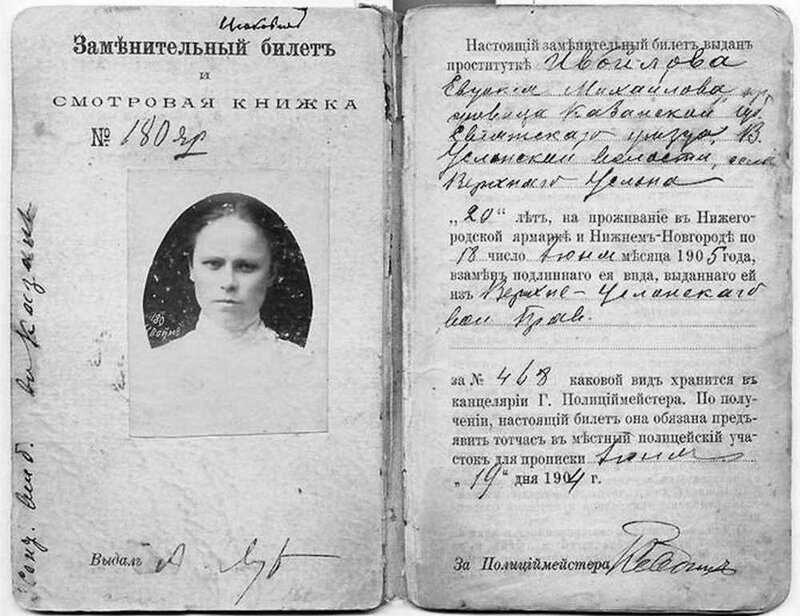 Замѣнительный билетъ
и
СМОТРОВАЯ КНИЖКА
№ 180 яр
Выдалъ
Настоящій замѣнительный билетъ выданъ
проституткѣ
Михайлова
Казанской губ.
уѣзда, В.
Услонской волости, села
Верхняго Услона
„20“ лѣтъ, на проживаніе въ Нижего-
родской ярмаркѣ и Нижнемъ-Новгородѣ по
18 число Іюня мѣсяца 1905 года,
взамѣнъ подлиннаго ея вида, выданнаго ей
изъ Верхне-Услонскаго
вол. Прав.
за № 468 каковой видъ хранится въ
канцеляріи Г. Полиціймейстера. По полу-
ченіи, настоящій билетъ она обязана предъ-
явить тотчасъ въ мѣстный полицейскій уча-
стокъ для прописки Іюня
„19“ дня 1904 г.
За Полиціймейстера